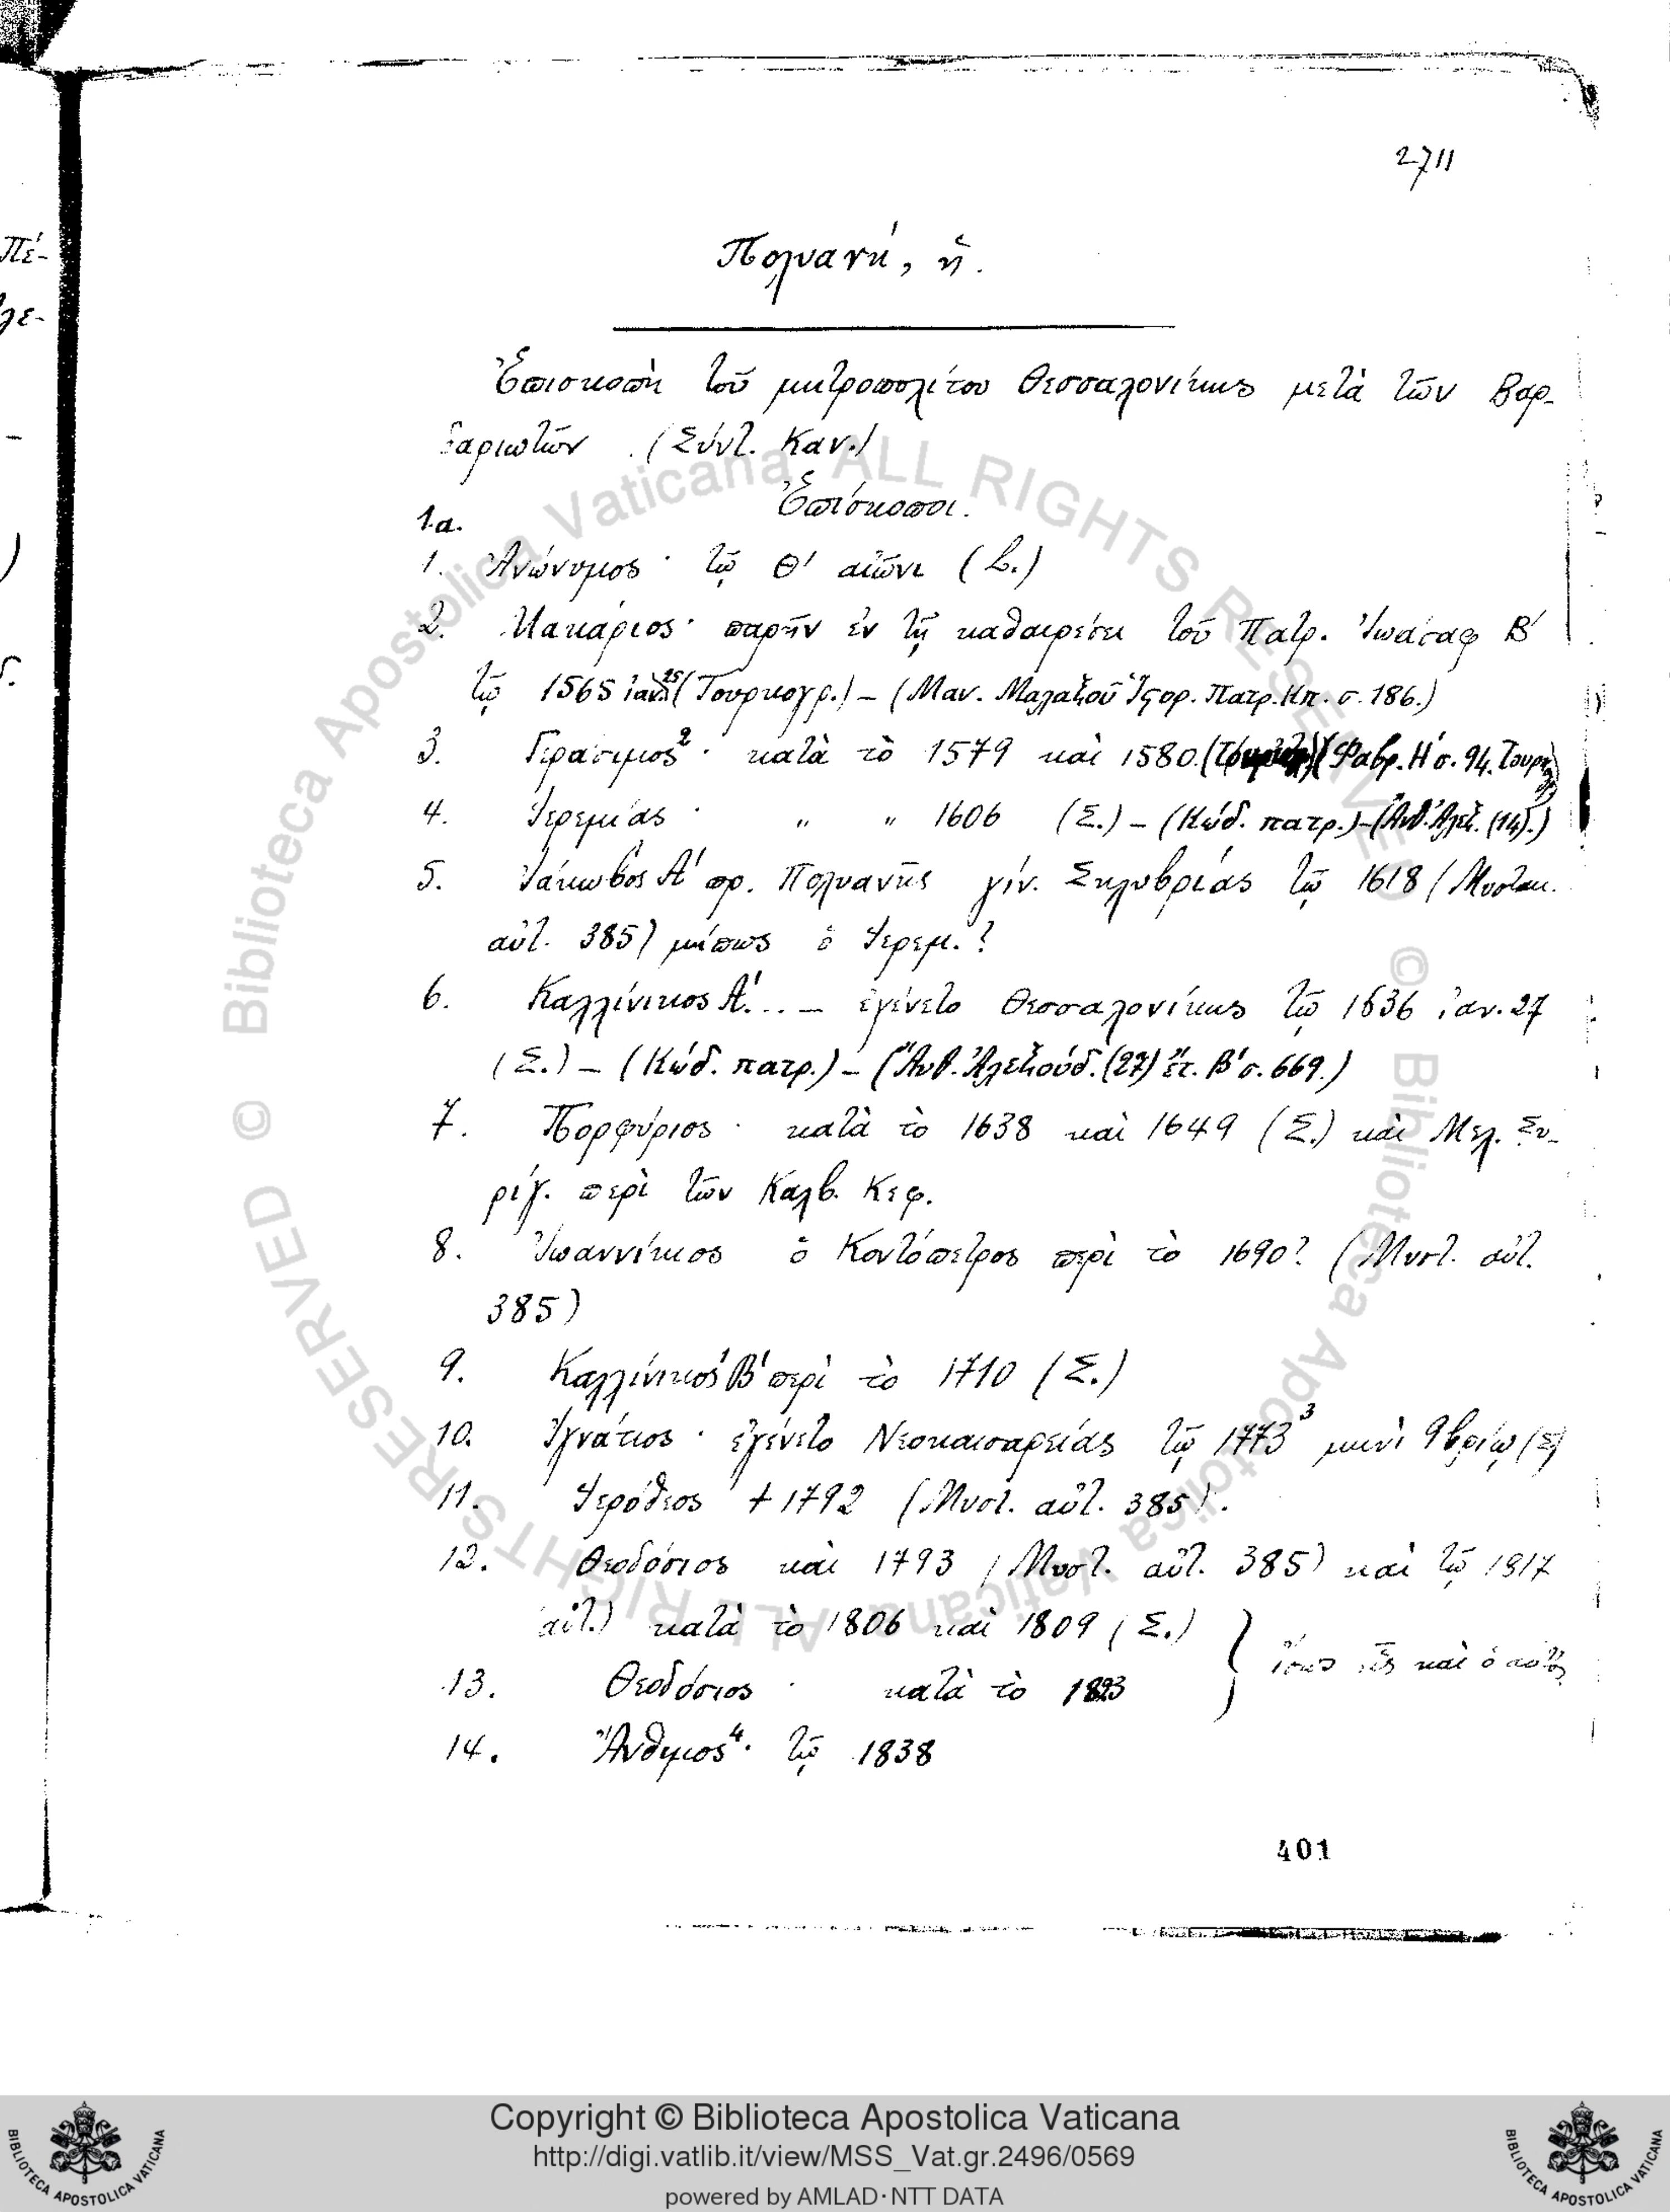 2711
Πέ-
λε-
Πολυανή, ἡ.
Ἐπισκοπὴ τοῦ μητροπολίτου Θεσσαλονίκης μετὰ τῶν Βαρ-
δαριωτῶν (Σύντ. Καν.)
Ἐπίσκοποι.
1.α.
1. Ἀνώνυμος· τῷ Θ' αἰῶνι (L.)
2. Μακάριος· παρῆν ἐν τῇ καθαιρέσει τοῦ Πατρ. Ἰωάσαφ Β'
τῷ 1565 (Τουρκογρ.) – (Μαν. Μαλαξοῦ Ἱστορ. Πατρ. Κπ. σ. 186.)
3. Γεράσιμος²· κατὰ τὸ 1579 καὶ 1580. (Φαβρ. Η' σ. 94. Τουρκογρ)
4. Ἱερεμίας · " " 1606 (Σ.) – (Κώδ. πατρ.) – (Ἀνθ. Ἀλεξ. (14).)
5. Ἰάκωβος Α' πρ. Πολυανῆς γίν. Σηλυβρίας τῷ 1618 (Μυστακ.
αὐτ. 385) μήπως ὁ Ἱερεμ.?
6. Καλλίνικος Α'... – ἐγένετο Θεσσαλονίκης τῷ 1636 ἰαν. 27
(Σ.) – (Κώδ. πατρ.) – (Ἄνθ. Ἀλεξούδ. (27) ἔτ. Β' σ. 669.)
7. Πορφύριος · κατὰ τὸ 1638 καὶ 1649 (Σ.) καὶ Μελ. Συ-
ρίγ. περὶ τῶν Καλβ. Κεφ.
8. Ἰωαννίκιος ὁ Κοντόπετρος περὶ τὸ 1690? (Μυστ. αὐτ.
385)
9. Καλλίνικος Β' περὶ τὸ 1710 (Σ.)
10. Ἰγνάτιος · ἐγένετο Νεοκαισαρείας τῷ 1773³ μηνὶ 9βρίῳ (Σ)
11. Ἱερόθεος † 1792 (Μυστ. αὐτ. 385).
12. Θεοδόσιος καὶ 1793 (Μυστ. αὐτ. 385) καὶ τῷ 1817
αὐτ.) κατὰ τὸ 1806 καὶ 1809 (Σ.)
} ἴσως εἷς καὶ ὁ αὐτός
13. Θεοδόσιος · κατὰ τὸ 1823
14. Ἄνθιμος⁴· τῷ 1838
401
© Biblioteca Apostolica Vaticana ALL RIGHTS RESERVED © Biblioteca Apostolica Vaticana ALL RIGHTS RESERVED
Copyright © Biblioteca Apostolica Vaticana
http://digi.vatlib.it/view/MSS_Vat.gr.2496/0569
powered by AMLAD·NTT DATA
BIBLIOTECA APOSTOLICA VATICANA
BIBLIOTECA APOSTOLICA VATICANA